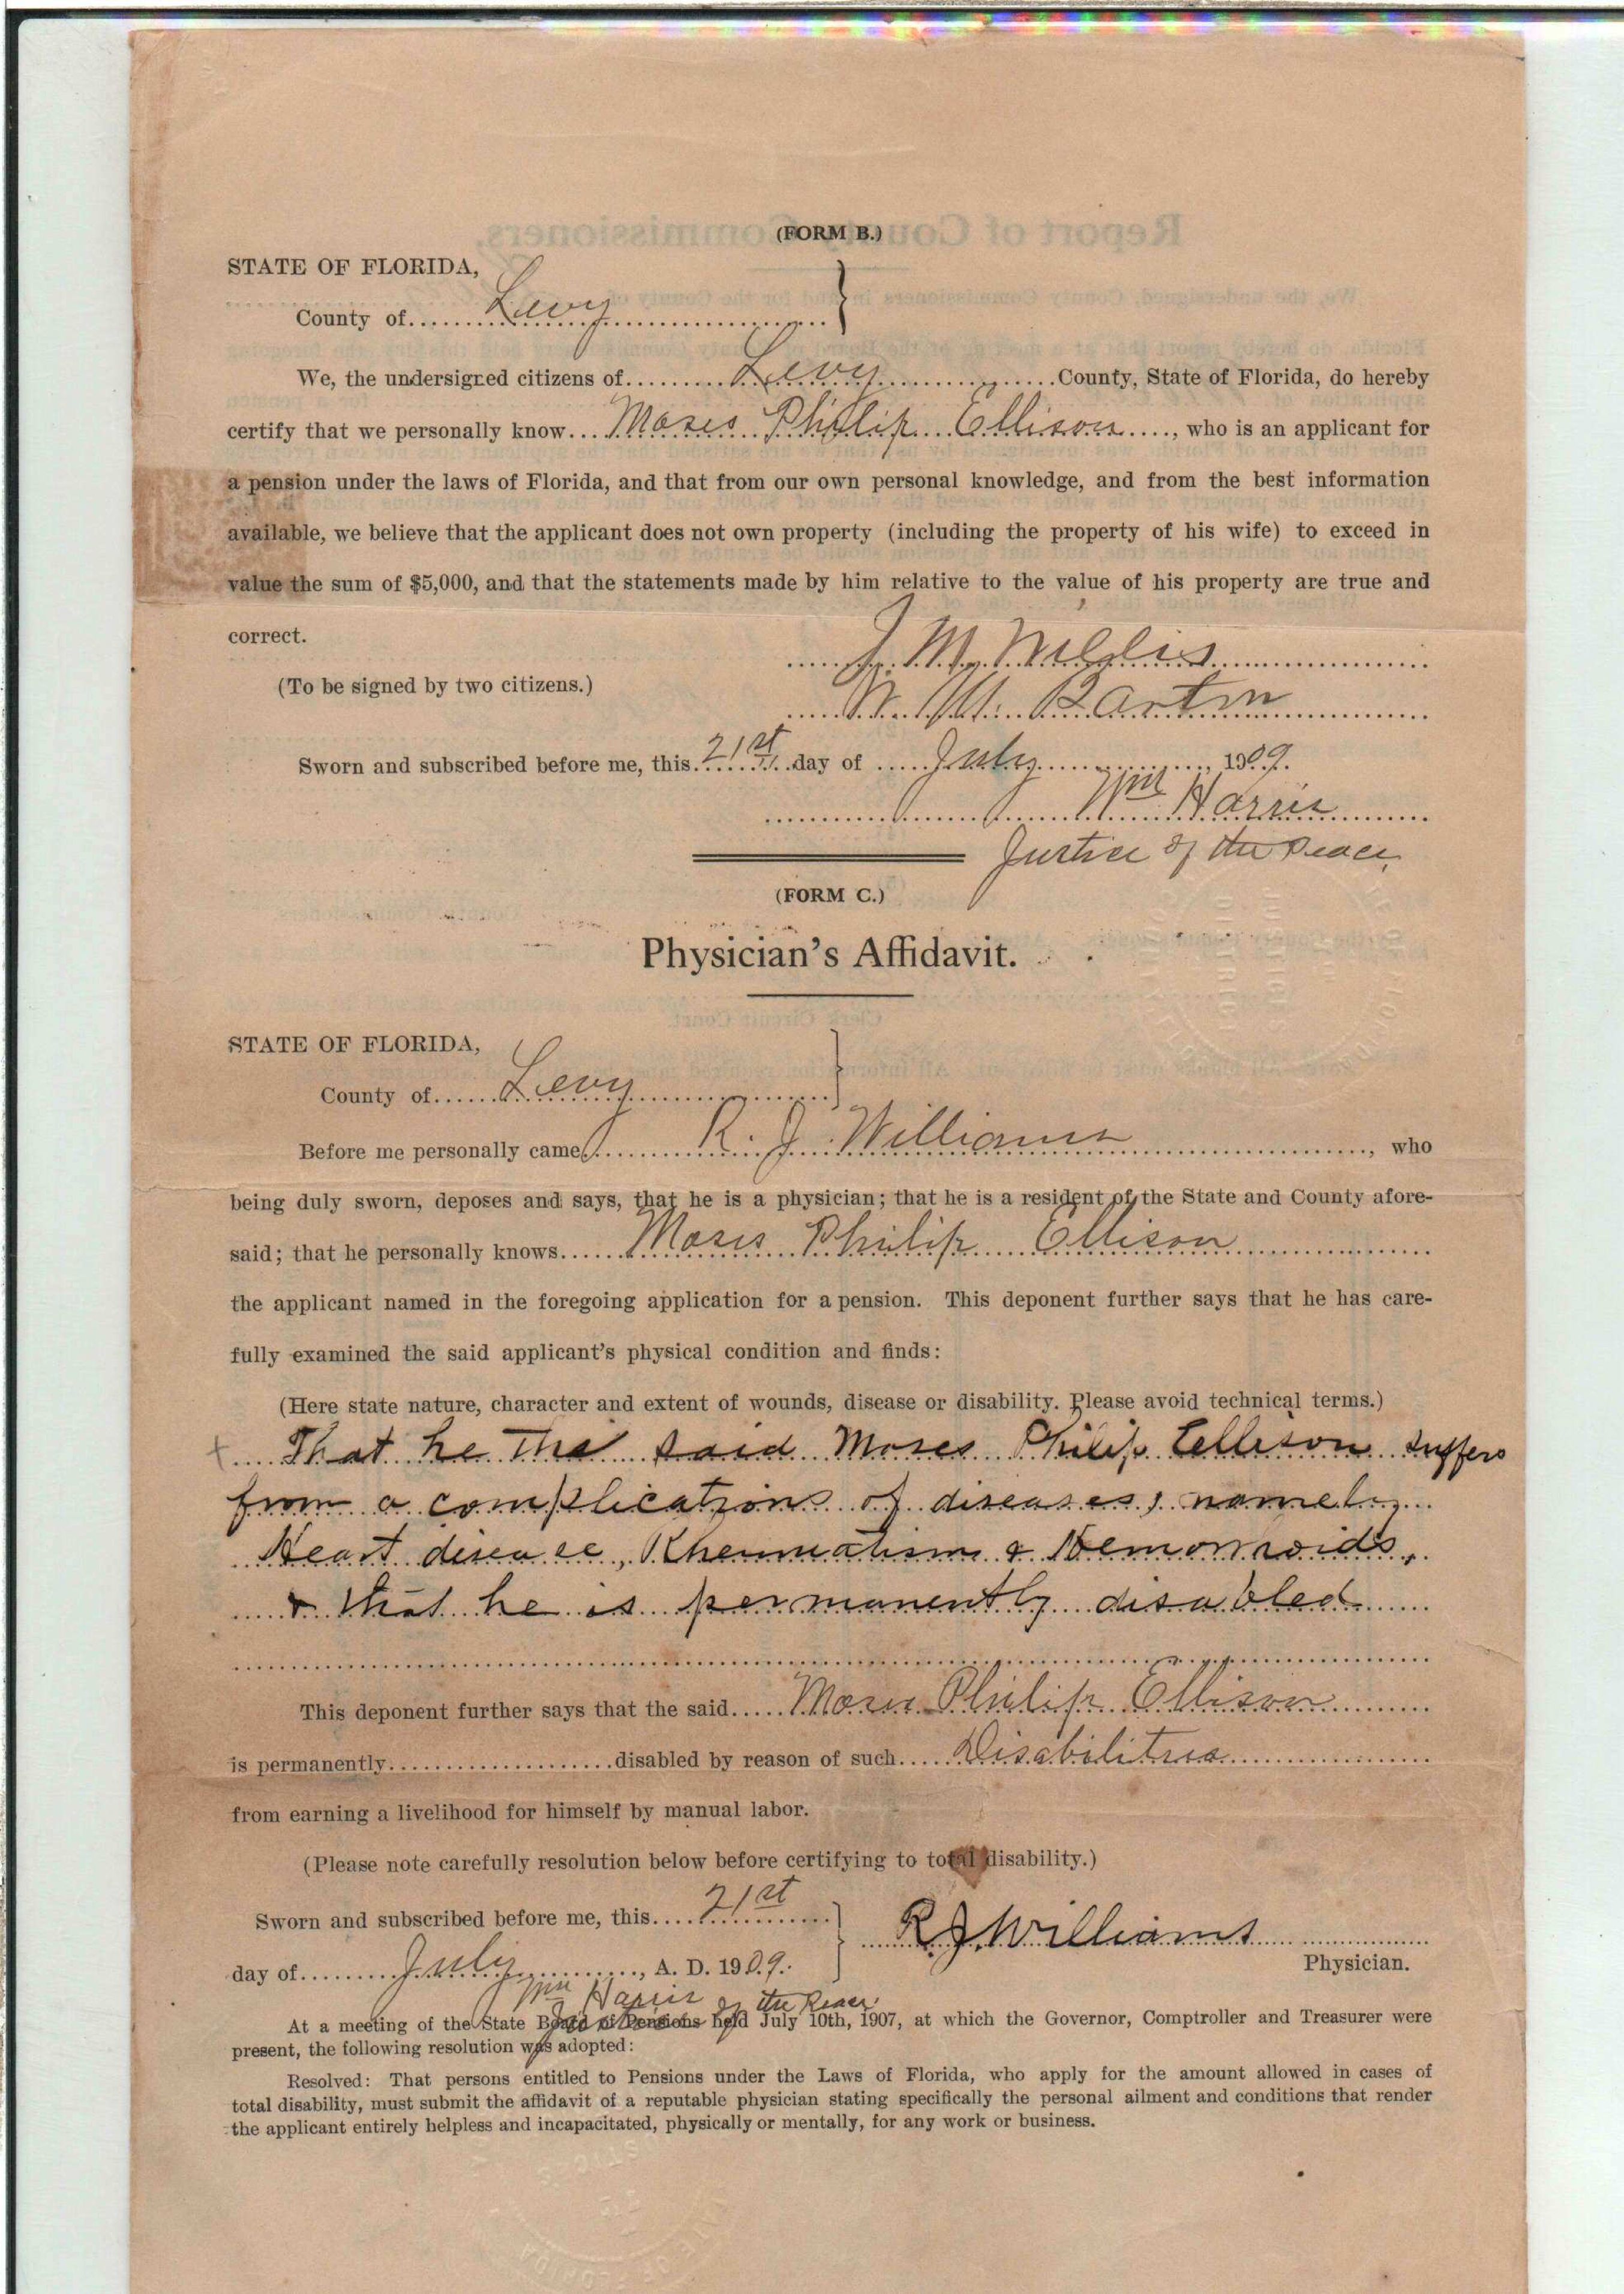 (FORM B.)
STATE OF FLORIDA,
County of Levy
We, the undersigned citizens of Levy County, State of Florida, do hereby
certify that we personally know Moses Philip Ellison, who is an applicant for
a pension under the laws of Florida, and that from our own personal knowledge, and from the best information
available, we believe that the applicant does not own property (including the property of his wife) to exceed in
value the sum of $5,000, and that the statements made by him relative to the value of his property are true and
correct.
J. M. Willis
(To be signed by two citizens.)
W. M. Barton
Sworn and subscribed before me, this 21st day of July, 1909.
Wm Harris
Justice of the Peace
(FORM C.)
Physician's Affidavit.
STATE OF FLORIDA,
County of Levy
Before me personally came R. J. Williams, who
being duly sworn, deposes and says, that he is a physician; that he is a resident of the State and County afore-
said; that he personally knows Moses Philip Ellison
the applicant named in the foregoing application for a pension. This deponent further says that he has care-
fully examined the said applicant's physical condition and finds:
(Here state nature, character and extent of wounds, disease or disability. Please avoid technical terms.)
That he the said Moses Philip Ellison suffers
from a complications of diseases, namely
Heart disease, Rheumatism & Hemorrhoids,
& that he is permanently disabled
This deponent further says that the said Moses Philip Ellison
is permanently disabled by reason of such Disabilities
from earning a livelihood for himself by manual labor.
(Please note carefully resolution below before certifying to total disability.)
Sworn and subscribed before me, this 21st
R J Williams
day of July, A. D. 1909.
Physician.
Wm Harris
Justice of the Peace
At a meeting of the State Board of Pensions held July 10th, 1907, at which the Governor, Comptroller and Treasurer were
present, the following resolution was adopted:
Resolved: That persons entitled to Pensions under the Laws of Florida, who apply for the amount allowed in cases of
total disability, must submit the affidavit of a reputable physician stating specifically the personal ailment and conditions that render
the applicant entirely helpless and incapacitated, physically or mentally, for any work or business.